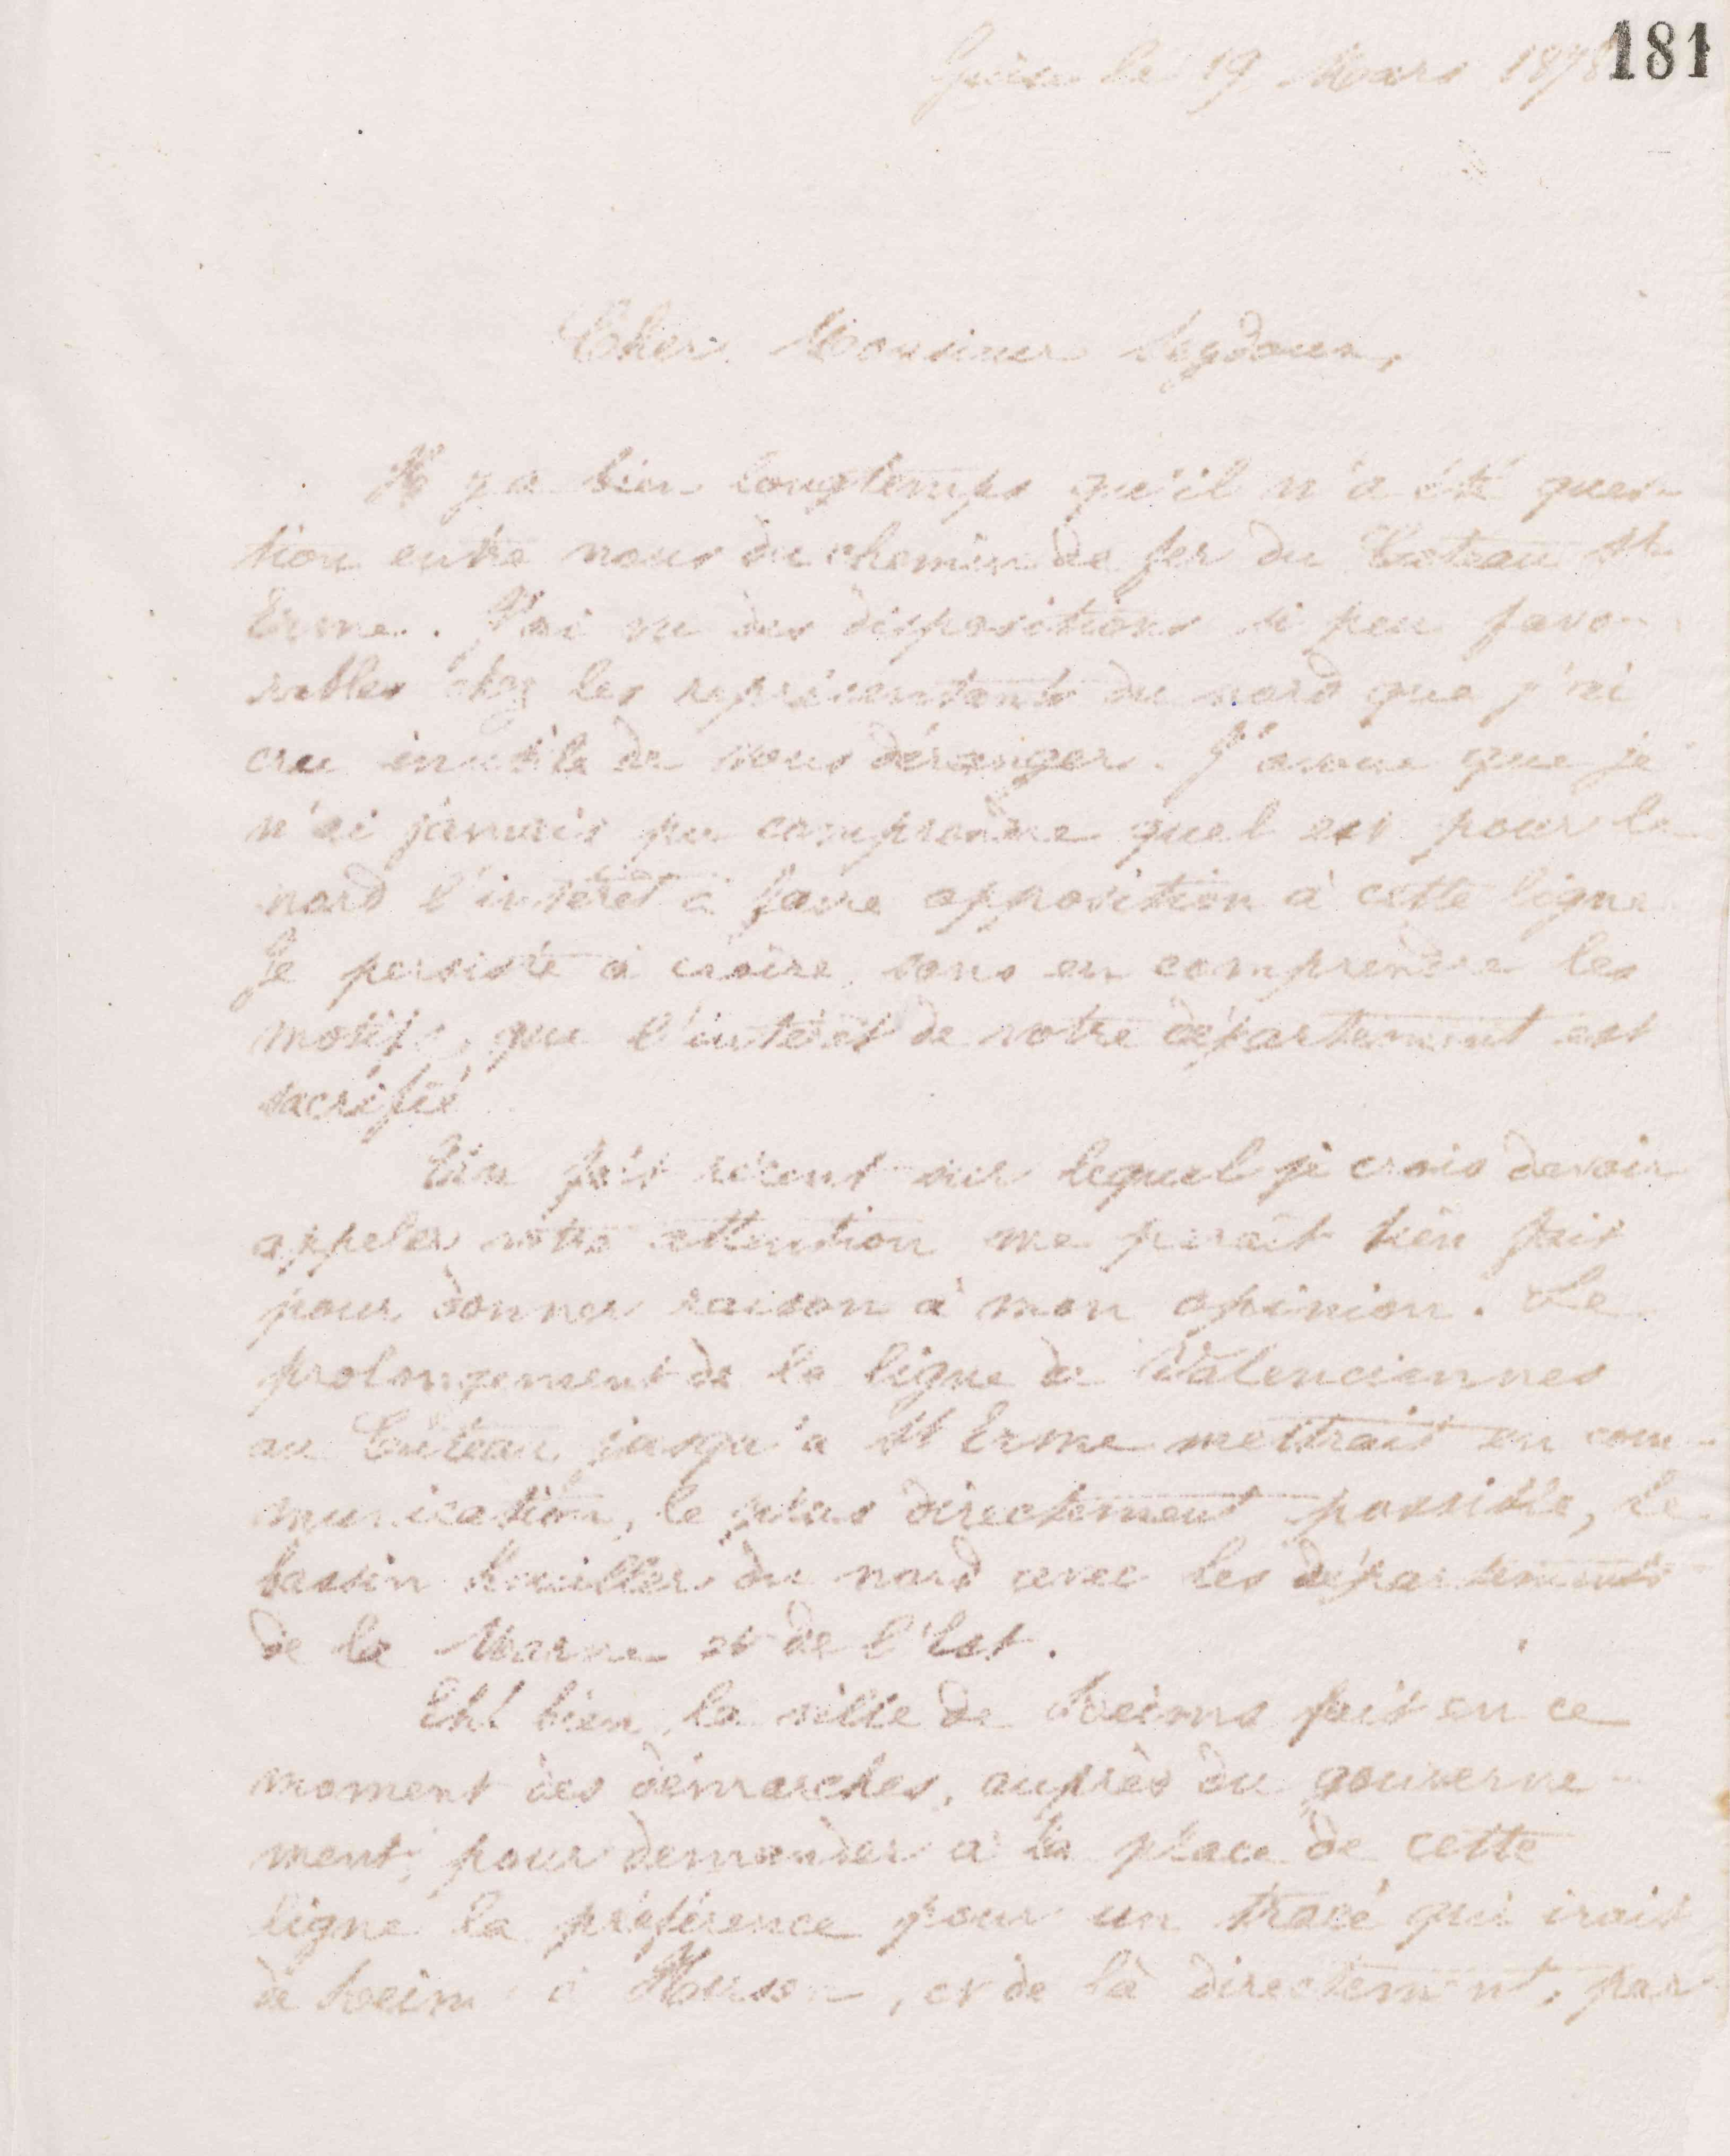 181
Guise le 19 Mars 1878
Cher Monsieur Seydoux,
Il y a bien longtemps qu'il n'a été ques-
tion entre nous du chemin de fer du Cateau St
Erme. J'ai vu des dispositions si peu favo-
rables chez les représentants du nord que j'ai
cru inutile de vous déranger. J'avoue que je
n'ai jamais pu comprendre quel est pour le
nord l'intérêt à faire opposition à cette ligne
Je persiste à croire, sans en comprendre les
motifs, que l'intérêt de votre département est
sacrifié
Un fait récent sur lequel je crois devoir
appeler votre attention me paraît bien fait
pour donner raison à mon opinion. Le
prolongement de la ligne de Valenciennes
au Cateau jusqu'à St Erme mettrait en com-
munication, le plus directement possible, le
bassin houiller du nord avec les départements
de la Marne et de l'Est.
Eh! bien, la ville de Reims fait en ce
moment des démarches, auprès du gouverne-
ment, pour demander à la place de cette
ligne la préférence pour un tracé qui irait
de Reims à Hirson, et de là directement, par